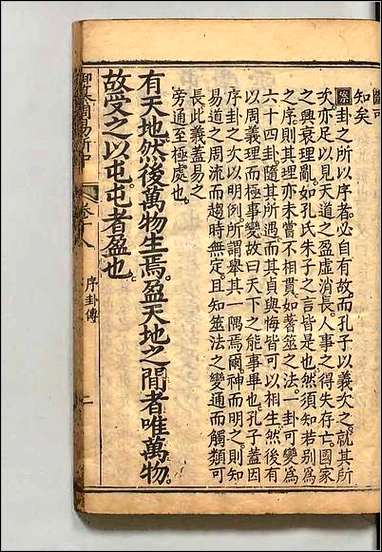 知矣
案卦之所以序者。必自有故。而孔子以義次之。就其所
次。亦足以見天道之盈虛消長。人事之得失存亡。國家
之興衰理亂。如孔氏朱子之言皆是也。然須知若别爲
之序。則其理亦未嘗不相貫。如蓍筮之法。一卦可變爲
六十四卦。隨其所遇。而其貞與悔皆可以相生。然後有
以周義理而極事變。故曰天下之能事畢也。孔子蓋因
序卦之次以明例。所謂舉其一隅焉爾。神而明之。則知
易道之周流而趨時無定。且知筮法之變通而觸類可
長。此義蓋易之
旁通至極處也。
有天地然後萬物生焉。盈天地之間者唯萬物。
故受之以屯。屯者盈也。
御纂周易折中
卷十八
序卦傳
二